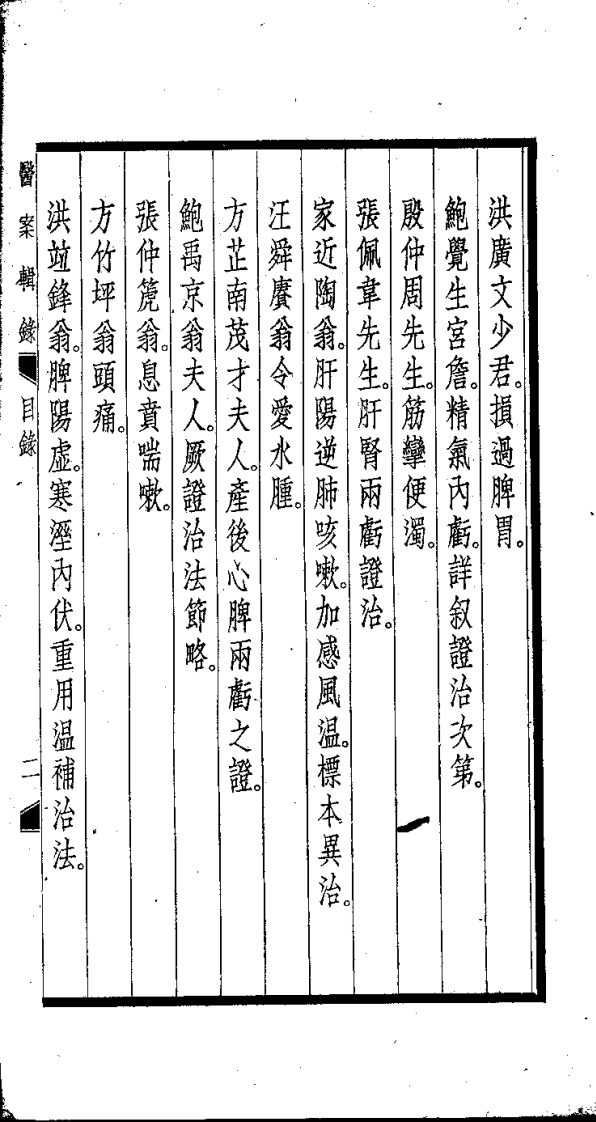 洪廣文少君。損過脾胃。
鮑覺生宮詹。精氣內虧。詳叙證治次第。
殷仲周先生。筋攣便濁。
張佩韋先生。肝腎兩虧證治。
家近陶翁。肝陽逆肺咳嗽。加感風温。標本異治。
汪舜賡翁令愛水腫。
方芷南茂才夫人。產後心脾兩虧之證。
鮑禹京翁夫人。厥證治法節略。
張仲篪翁。息賁喘嗽。
方竹坪翁頭痛。
洪竝鋒翁。脾陽虛。寒溼內伏。重用温補治法。
醫案輯錄 目錄 二